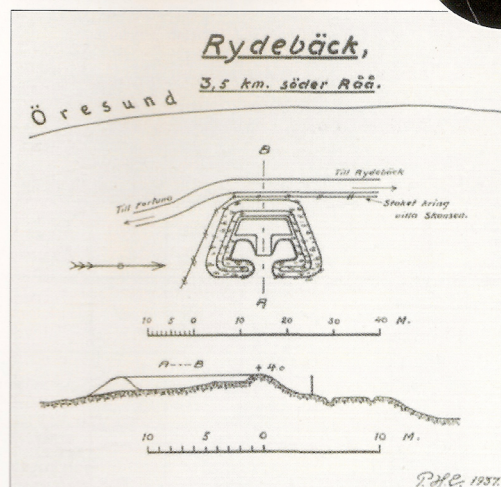 Rydebäck,
3,5 km. söder Råå.
Öresund
B
Till Rydebäck
Till Fortuna
Staket kring
villa Skansed.
A
10 5 0 10 20 30 40 M.
A----B
+4.0
10 5 0 10 M.
P.H.E. 1937.